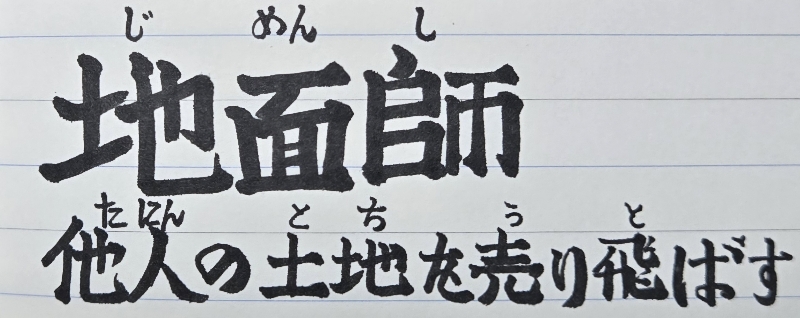 じ めん し
地面師
たにん と ち う と
他人の土地を売り飛ばす